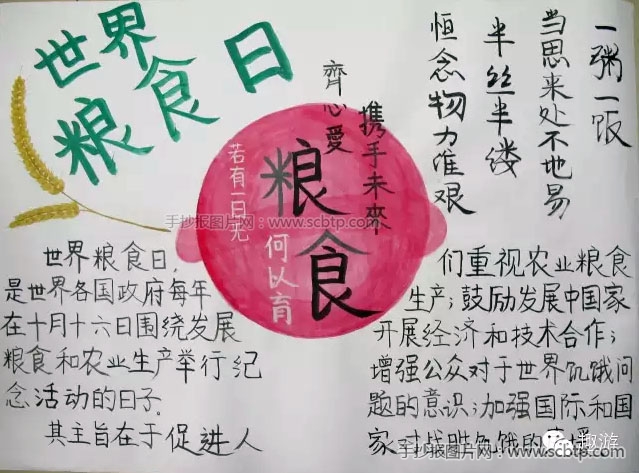 世界
粮食日
一粥一饭
当思来处不地易
半丝半缕
恒念物力维艰
齊心愛
携手未來
粮食
若有一日无
何以育
手抄报图片网：www.scbtp.com
世界粮食日,
是世界各国政府每年
在十月十六日围绕发展
粮食和农业生产举行纪
念活动的日子.
其主旨在于促进人
们重视农业粮食
生产；鼓励发展中国家
开展经济和技术合作；
增强公众对于世界饥饿问
题的意识；加强国际和国
家对战胜饥饿的
手抄报图片网：www.scbtp.com
趣游